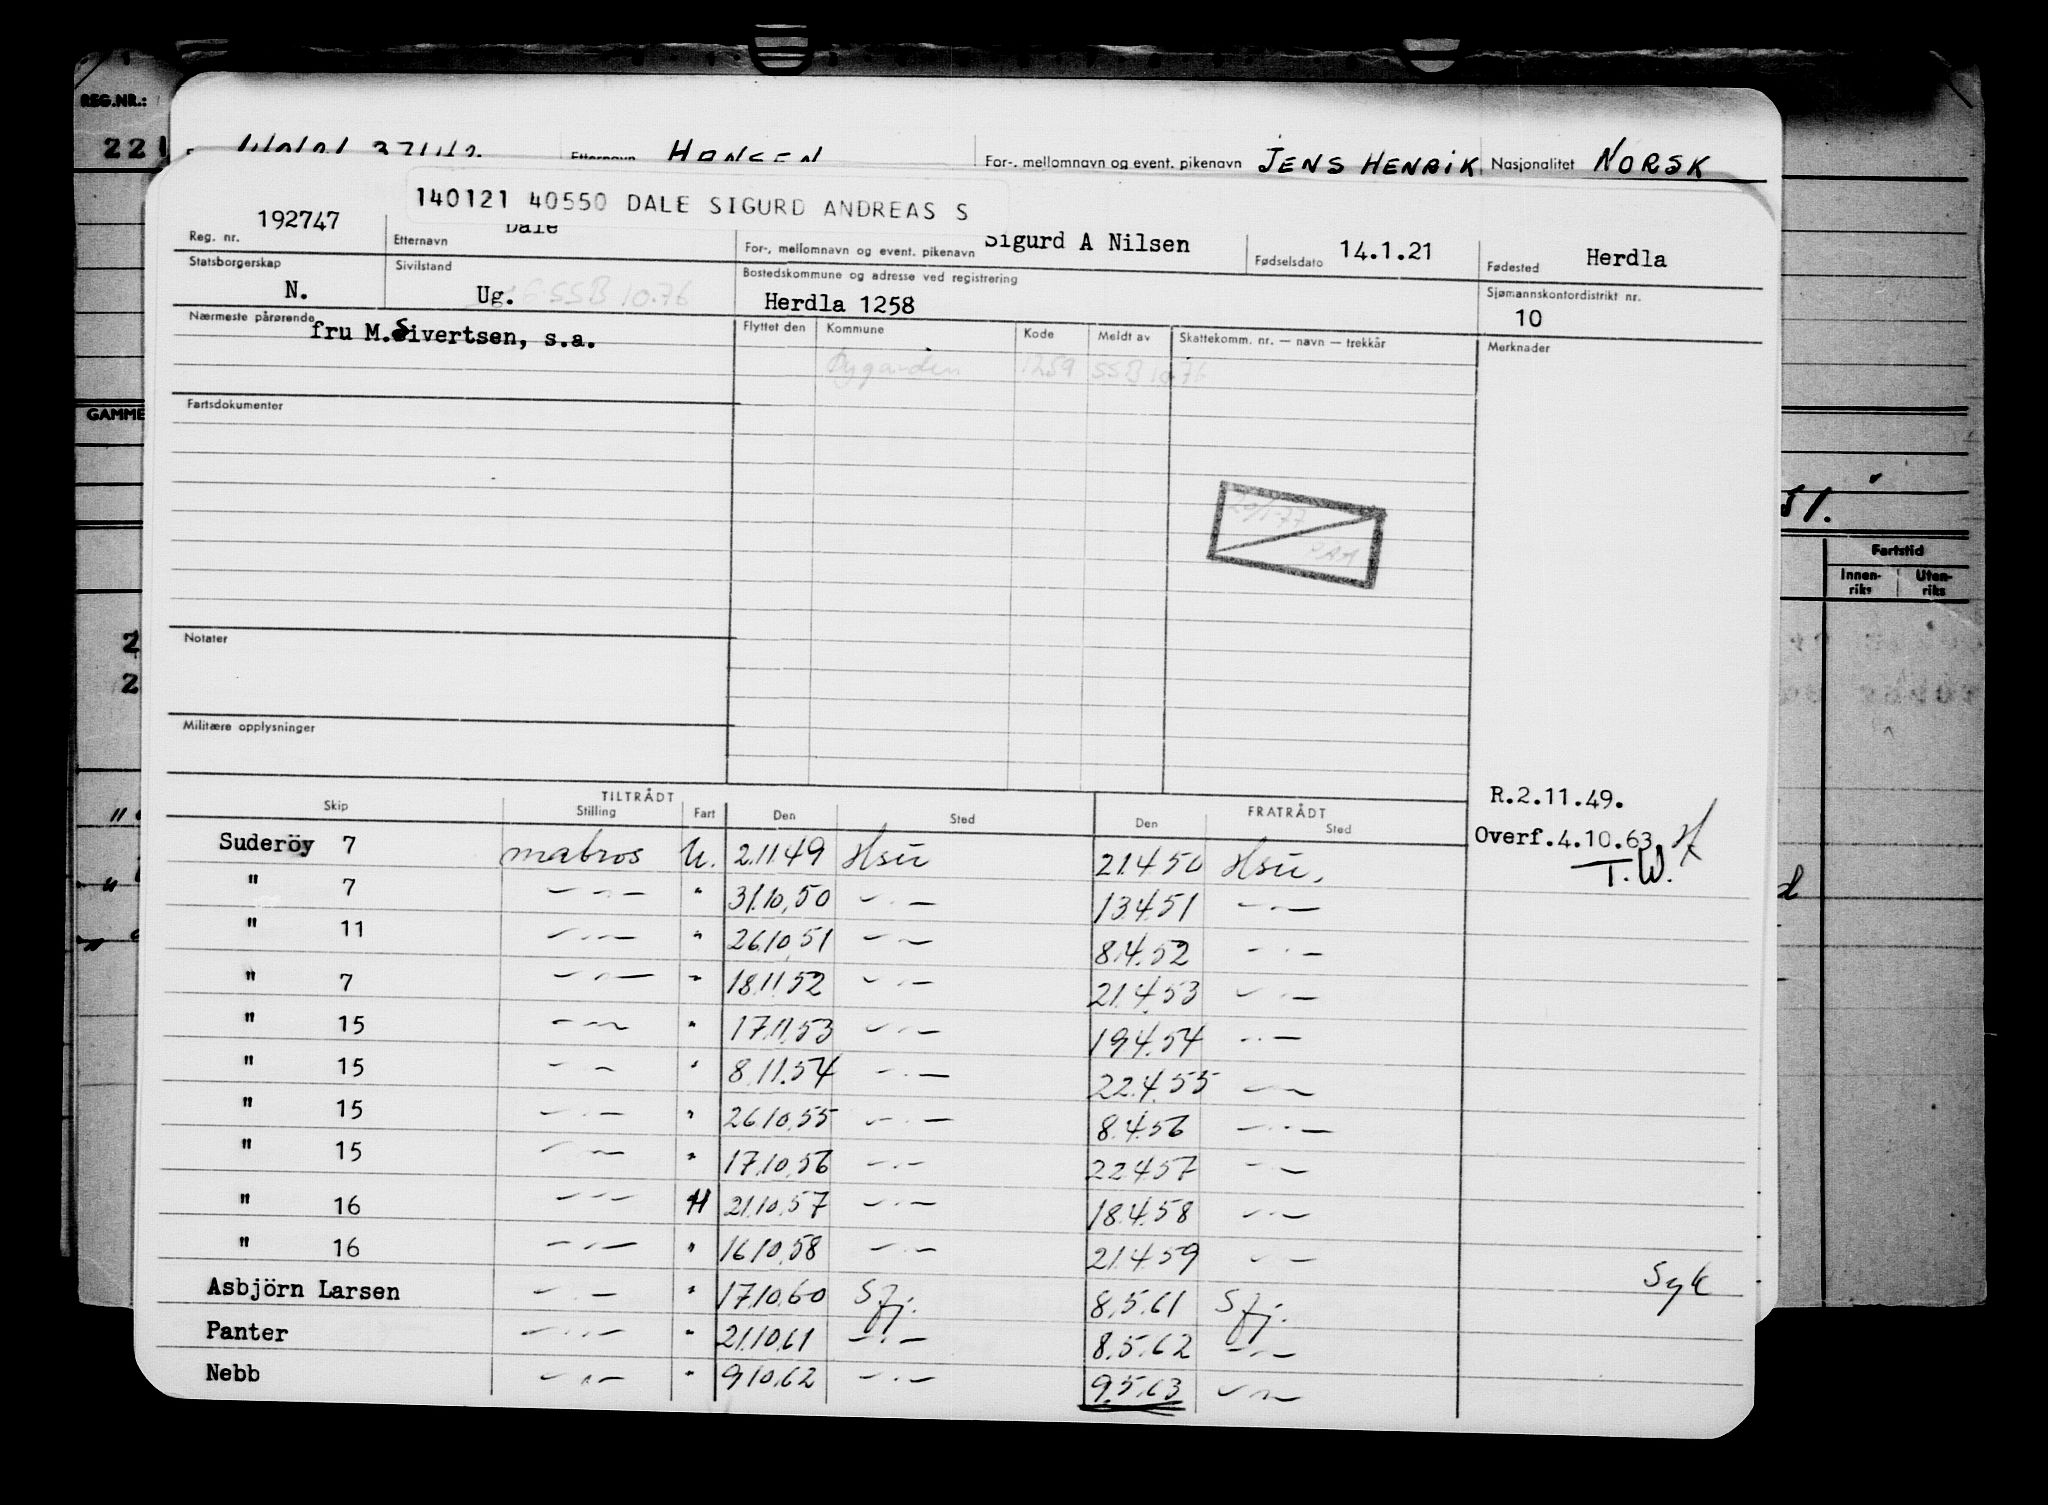 REG.NR.:
221
Etternavn HANSEN For-, mellomnavn og event. pikenavn JENS HENRIK Nasjonalitet NORSK
140121 40550 DALE SIGURD ANDREAS S
Reg. nr. 192747 Etternavn Dale For-, mellomnavn og event. pikenavn Sigurd A Nilsen Fødselsdato 14.1.21 Fødested Herdla
Statsborgerskap N. Sivilstand Ug. G SSB 10.76 Bostedskommune og adresse ved registrering Herdla 1258 Sjømannskontordistrikt nr. 10
Nærmeste pårørende fru M.Sivertsen, s.a. Flyttet den Kommune Kode Meldt av Skattekomm. nr. — navn — trekkår Merknader
Øygarden 1259 SSB 10.76
GAMME
Fartsdokumenter
51.
Fartstid
Innen-riks Uten-riks
Notater
2
2
Militære opplysninger
R.2.11.49.
Skip TILTRÅDT Stilling Fart Den Sted FRATRÅDT Den Sted
Overf.4.10.63
T.W.
Suderöy 7 matros U. 2.11.49 Hsü 21.4.50 Hsü.
" 7 — " — " 31.10.50 — " — 13.4.51 — " —
" 11 — " — " 26.10.51 — " — 8.4.52 — " —
" 7 — " — " 18.11.52 — " — 21.4.53 — " —
" 15 — " — " 17.11.53 — " — 19.4.54 — " —
" 15 — " — " 8.11.54 — " — 22.4.55 — " —
" 15 — " — " 26.10.55 — " — 8.4.56 — " —
" 15 — " — " 17.10.56 — " — 22.4.57 — " —
" 16 — " — H 21.10.57 — " — 18.4.58 — " —
" 16 — " — " 16.10.58 — " — 21.4.59 — " — Syk
Asbjörn Larsen — " — " 17.10.60 Sfj. 8.5.61 Sfj.
Panter — " — " 21.10.61 — " — 8.5.62 — " —
Nebb — " — " 9.10.62 — " — 9.5.63 — " —